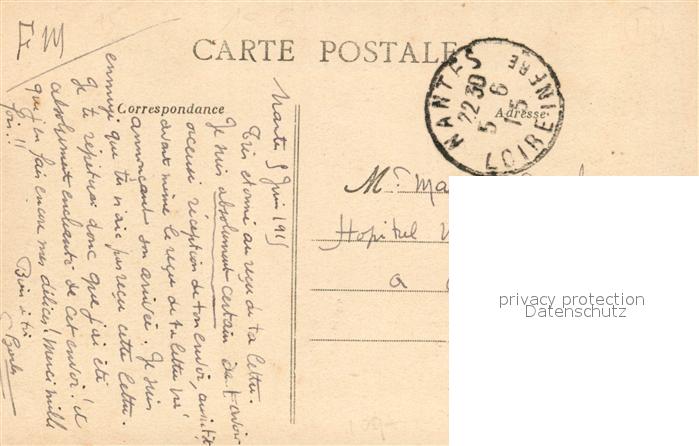 F M
CARTE POSTALE
NANTES
22 30
5 6
15
LOIRE INFRE
Correspondance
Adresse
Nantes 5 Juin 1915
Très étonné au reçu de ta lettre.
Je suis absolument certain de t'avoir
accusé réception de ton envoi,
avant même le reçu de ta lettre
annonçant son arrivée. Je suis
ennuyé que tu n'aies pas reçu cette lettre.
Je te répéterai donc que j'ai été
absolument enchanté de cet envoi! et
que j'en fais encore mes délices! Merci mille
fois!!
Bien à toi
Mr. Ma
Hopital
à
privacy protection
Datenschutz